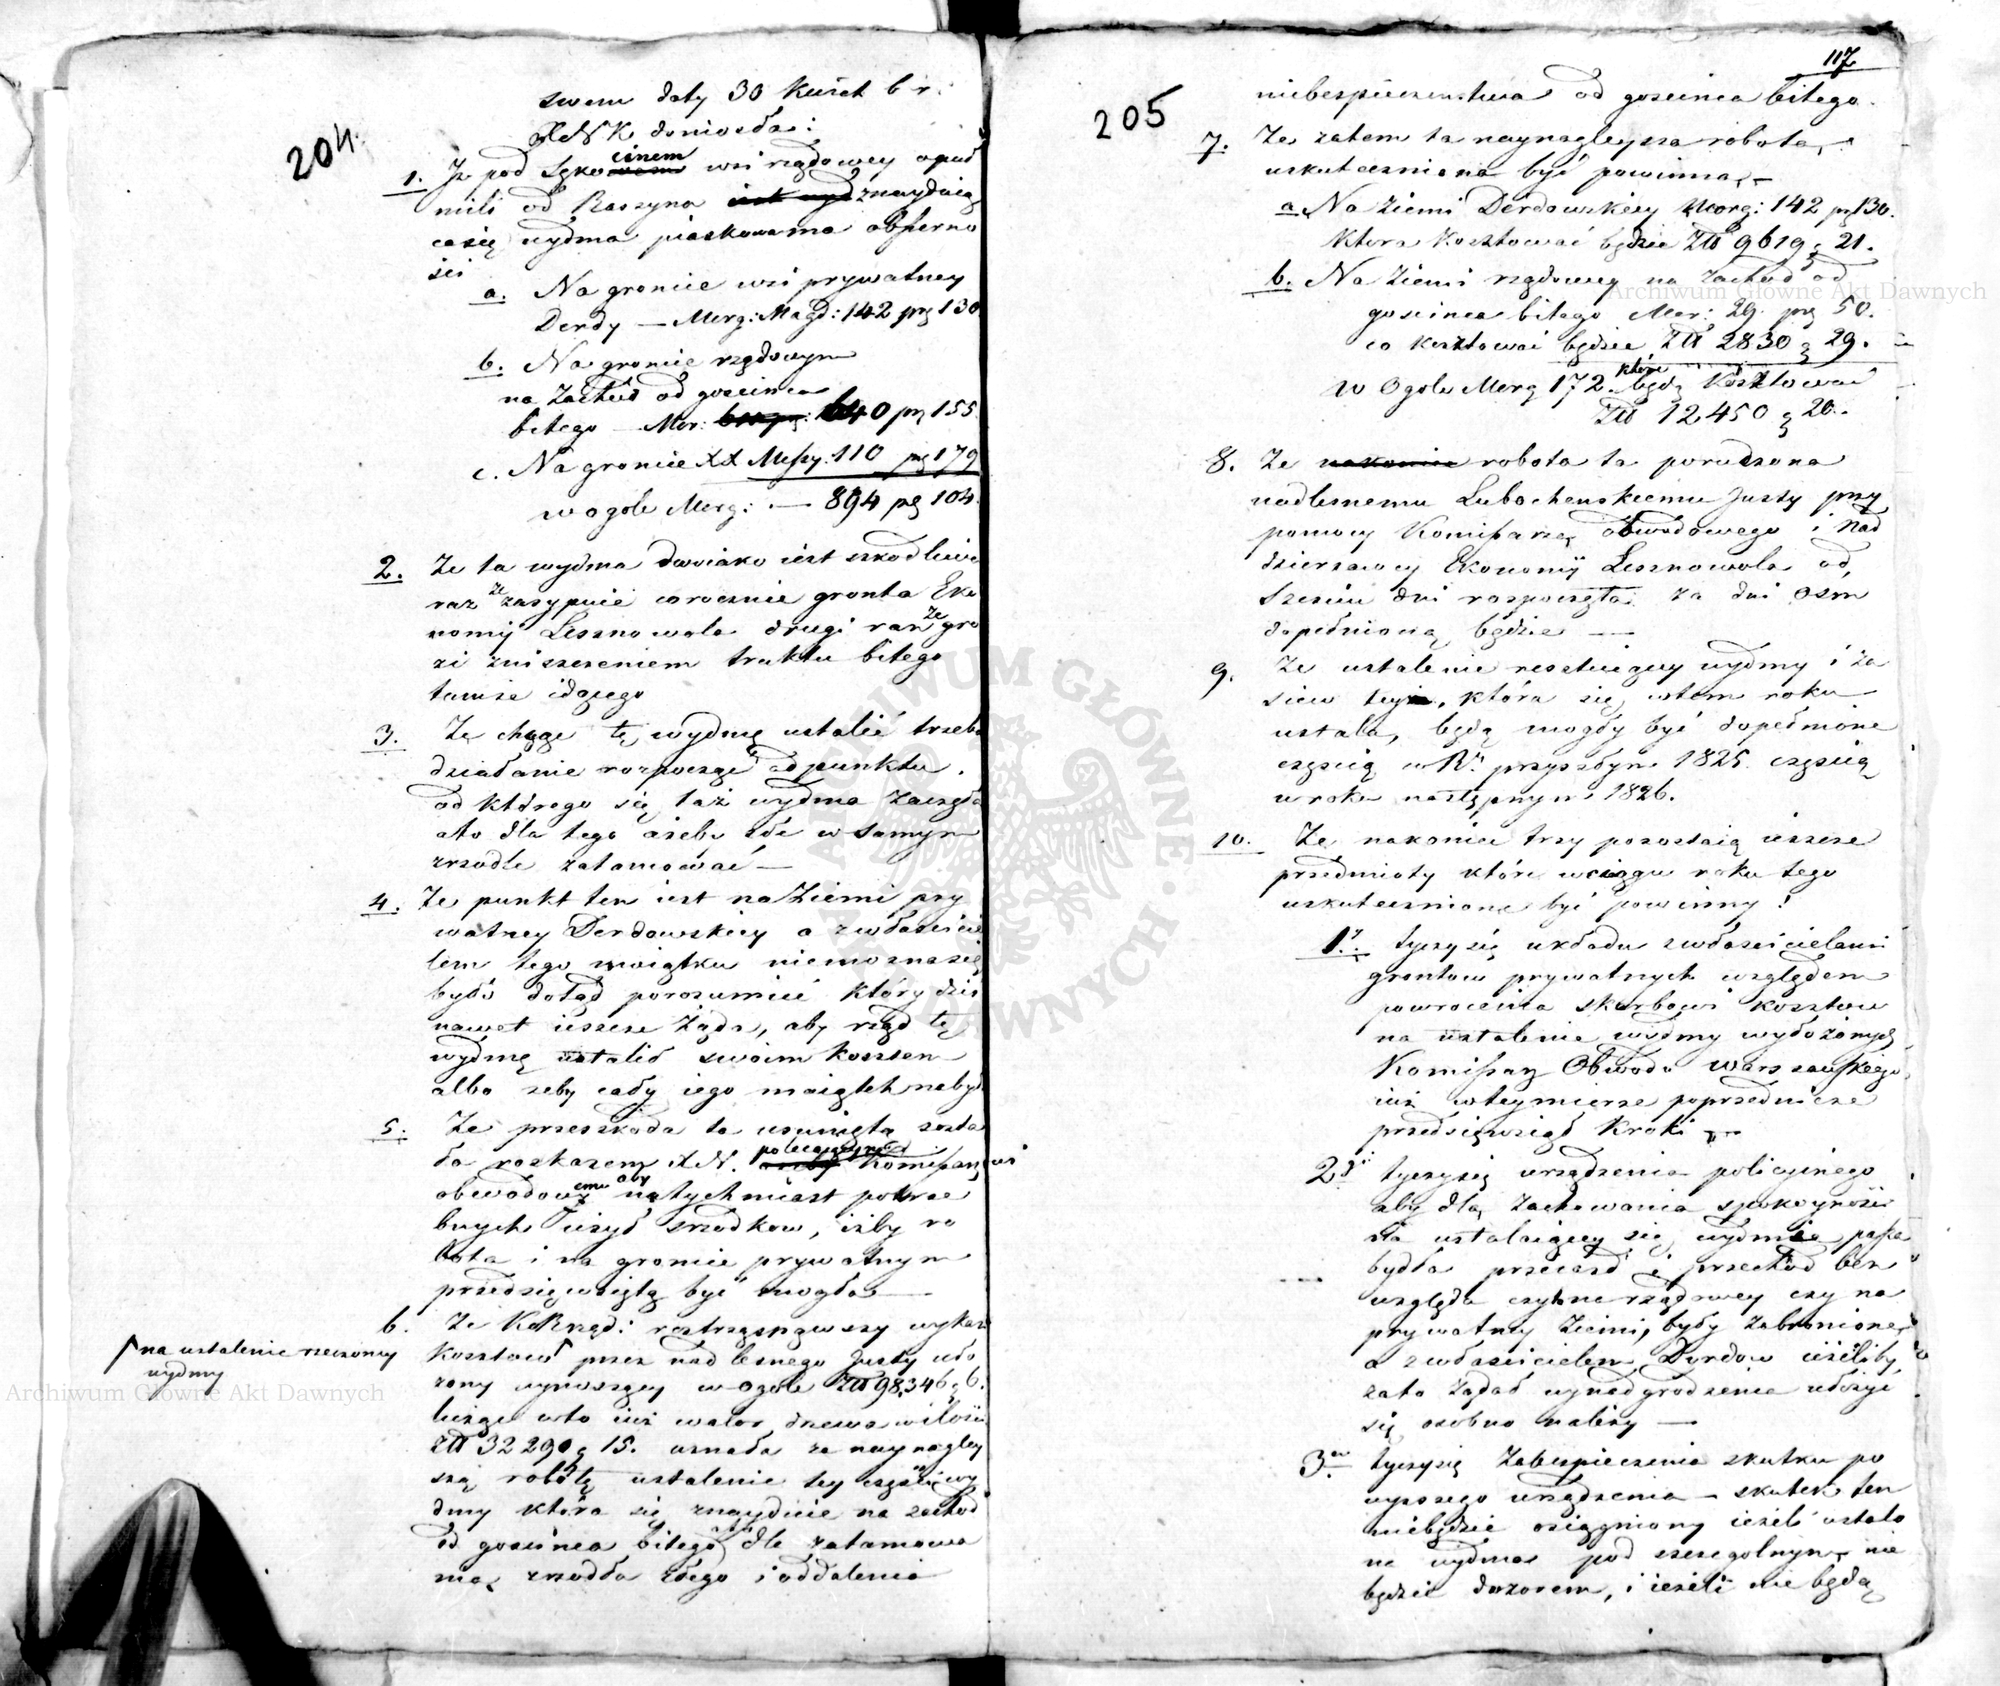 204.
swem daty 30 Kwiet b r.
donioosła:
1. Iz pod Sękocinem wsi rządowey opuł
mili od Raszyna znayduią
casię wydma piaskowa ma obszerno
ści
a. Na groncie wsi prywatney
Derdy — Morg: Magd: 142 prę 130
b. Na groncie rządowym
na Zachód od goscinca
bitego — Mor: 640 prę 155.
c. Na groncie XX Missy. 110 prę 179
w ogole Morg: — 894 prę 104.
2. Ze ta wydma dwoiako iest szkodliwa
raz ze zasypuie corocznie gronta Eko
nomij Lesznowola drugi raz ze gro
zi zniszczeniem traktu bitego
tamże idącego
3. Ze chcąc tę wydmę ustalić trzeba
działanie rozpocząć od punktu,
od którego się taż wydma zaczęła
a to dla tego ażeby złe w samym
zrzodle zatamować —
4. Ze punkt ten iest na Ziemi pry
watney Derdowskiey a z właścicie
lem tego maiątku niemożna się
było dotąd porozumieć który dziś
nawet ieszcze żąda, aby rząd tę
wydmę ustalił swoim kosztem
albo zeby cały iego maiątek nabył
5. Ze przeszkoda ta usunięta zosta
ła rozkazem JXN. polecaiącym Komissarzowi
obwodowemu aby natychmiast potrze
bnych użył srzodkow, iżby ro
bota i na groncie prywatnym
przedsięwziętą być mogła —
6. Ze K Rząd: roztrząsnąwszy wykaz
na ustalenie rzeczoney
wydmy
kosztow przez nadlesnego Justy uło
zony wynoszący w ogole Złł 98,346 g 6.
licząc w to iuż walor drzewa w ilości
Złł 32 290 g 15. uznała za naynagley
szą robotę ustalenie tey części wy
dmy która się znayduie na zachod
od goscinca bitego a to dla zatamowa
nia zrzodła złego i oddalenia
205
117
niebezpieczenstwa od goscinca bitego.
7. Ze zatem ta naynagleysza robota,
uskuteczniona być powinna, —
a. Na Ziemi Derdowskiey Morg: 142 prę 130.
Ktora kosztować będzie Złł 9619 g 21.
b. Na Ziemi rządowey na zachod od
goscinca bitego Mor: 29. prę 50.
co kosztować będzie Złł 2830 g 29.
w Ogole Morg 172. które będą kosztować
Złł 12450 g 20.
8. Ze robota ta poruczona
nadlesnemu Lubochenskiemu Justy przy
pomocy Komissarza obwodowego i Nad
dzierzawcy Ekonomij Lesznowola od
Szesciu dni rozpoczęta za dni osm
dopełnioną będzie —
9. Ze ustalenie resztuiącey wydmy i za
siew tey, która się w tem roku
ustala, będą mogły być dopełnione
częscią w R. przyszłym 1825. częscią
w roku następnym 1826.
10. Ze nakoniec trzy pozostaią ieszcze
przedmioty które w ciągu roku tego
uskutecznione być powinny:
1. tyczy się układu z właścicielami
grontow prywatnych względem
powrocenia skarbowi kosztow
na ustalenie wydmy wyłożonych
Komissarz Obwodu Warszawskiego
iuż w tey mierze poprzednicze
przedsięwziął Kroki —
2. tyczy się urządzenia policyinego
aby dla zachowania spokoyności
na ustalaiącey się wydmie pasza
bydła przeiazd i przechod bez
względu czy na rządowey czy na
prywatney Ziemi, były zabronione,
a z właścicielem Derdow ieśliby
za to żądał wynadgrodzenia ułożyć
się osobno należy —
3. tyczy się Zabezpieczenia skutku po
wyzszego urządzenia — skutek ten
niebędzie osiągniony ieżeli ustalo
na wydma pod szczegolnym nie
będzie dozorem, i ieżeli nie będą
Archiwum Główne Akt Dawnych
Archiwum Główne Akt Dawnych
ARCHIWUM GŁÓWNE AKT DAWNYCH